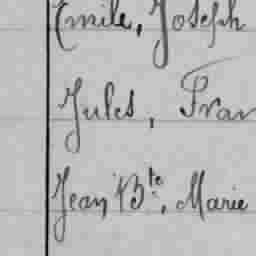 Emile, Joseph
Jules, Fran
Jean Bte, Marie